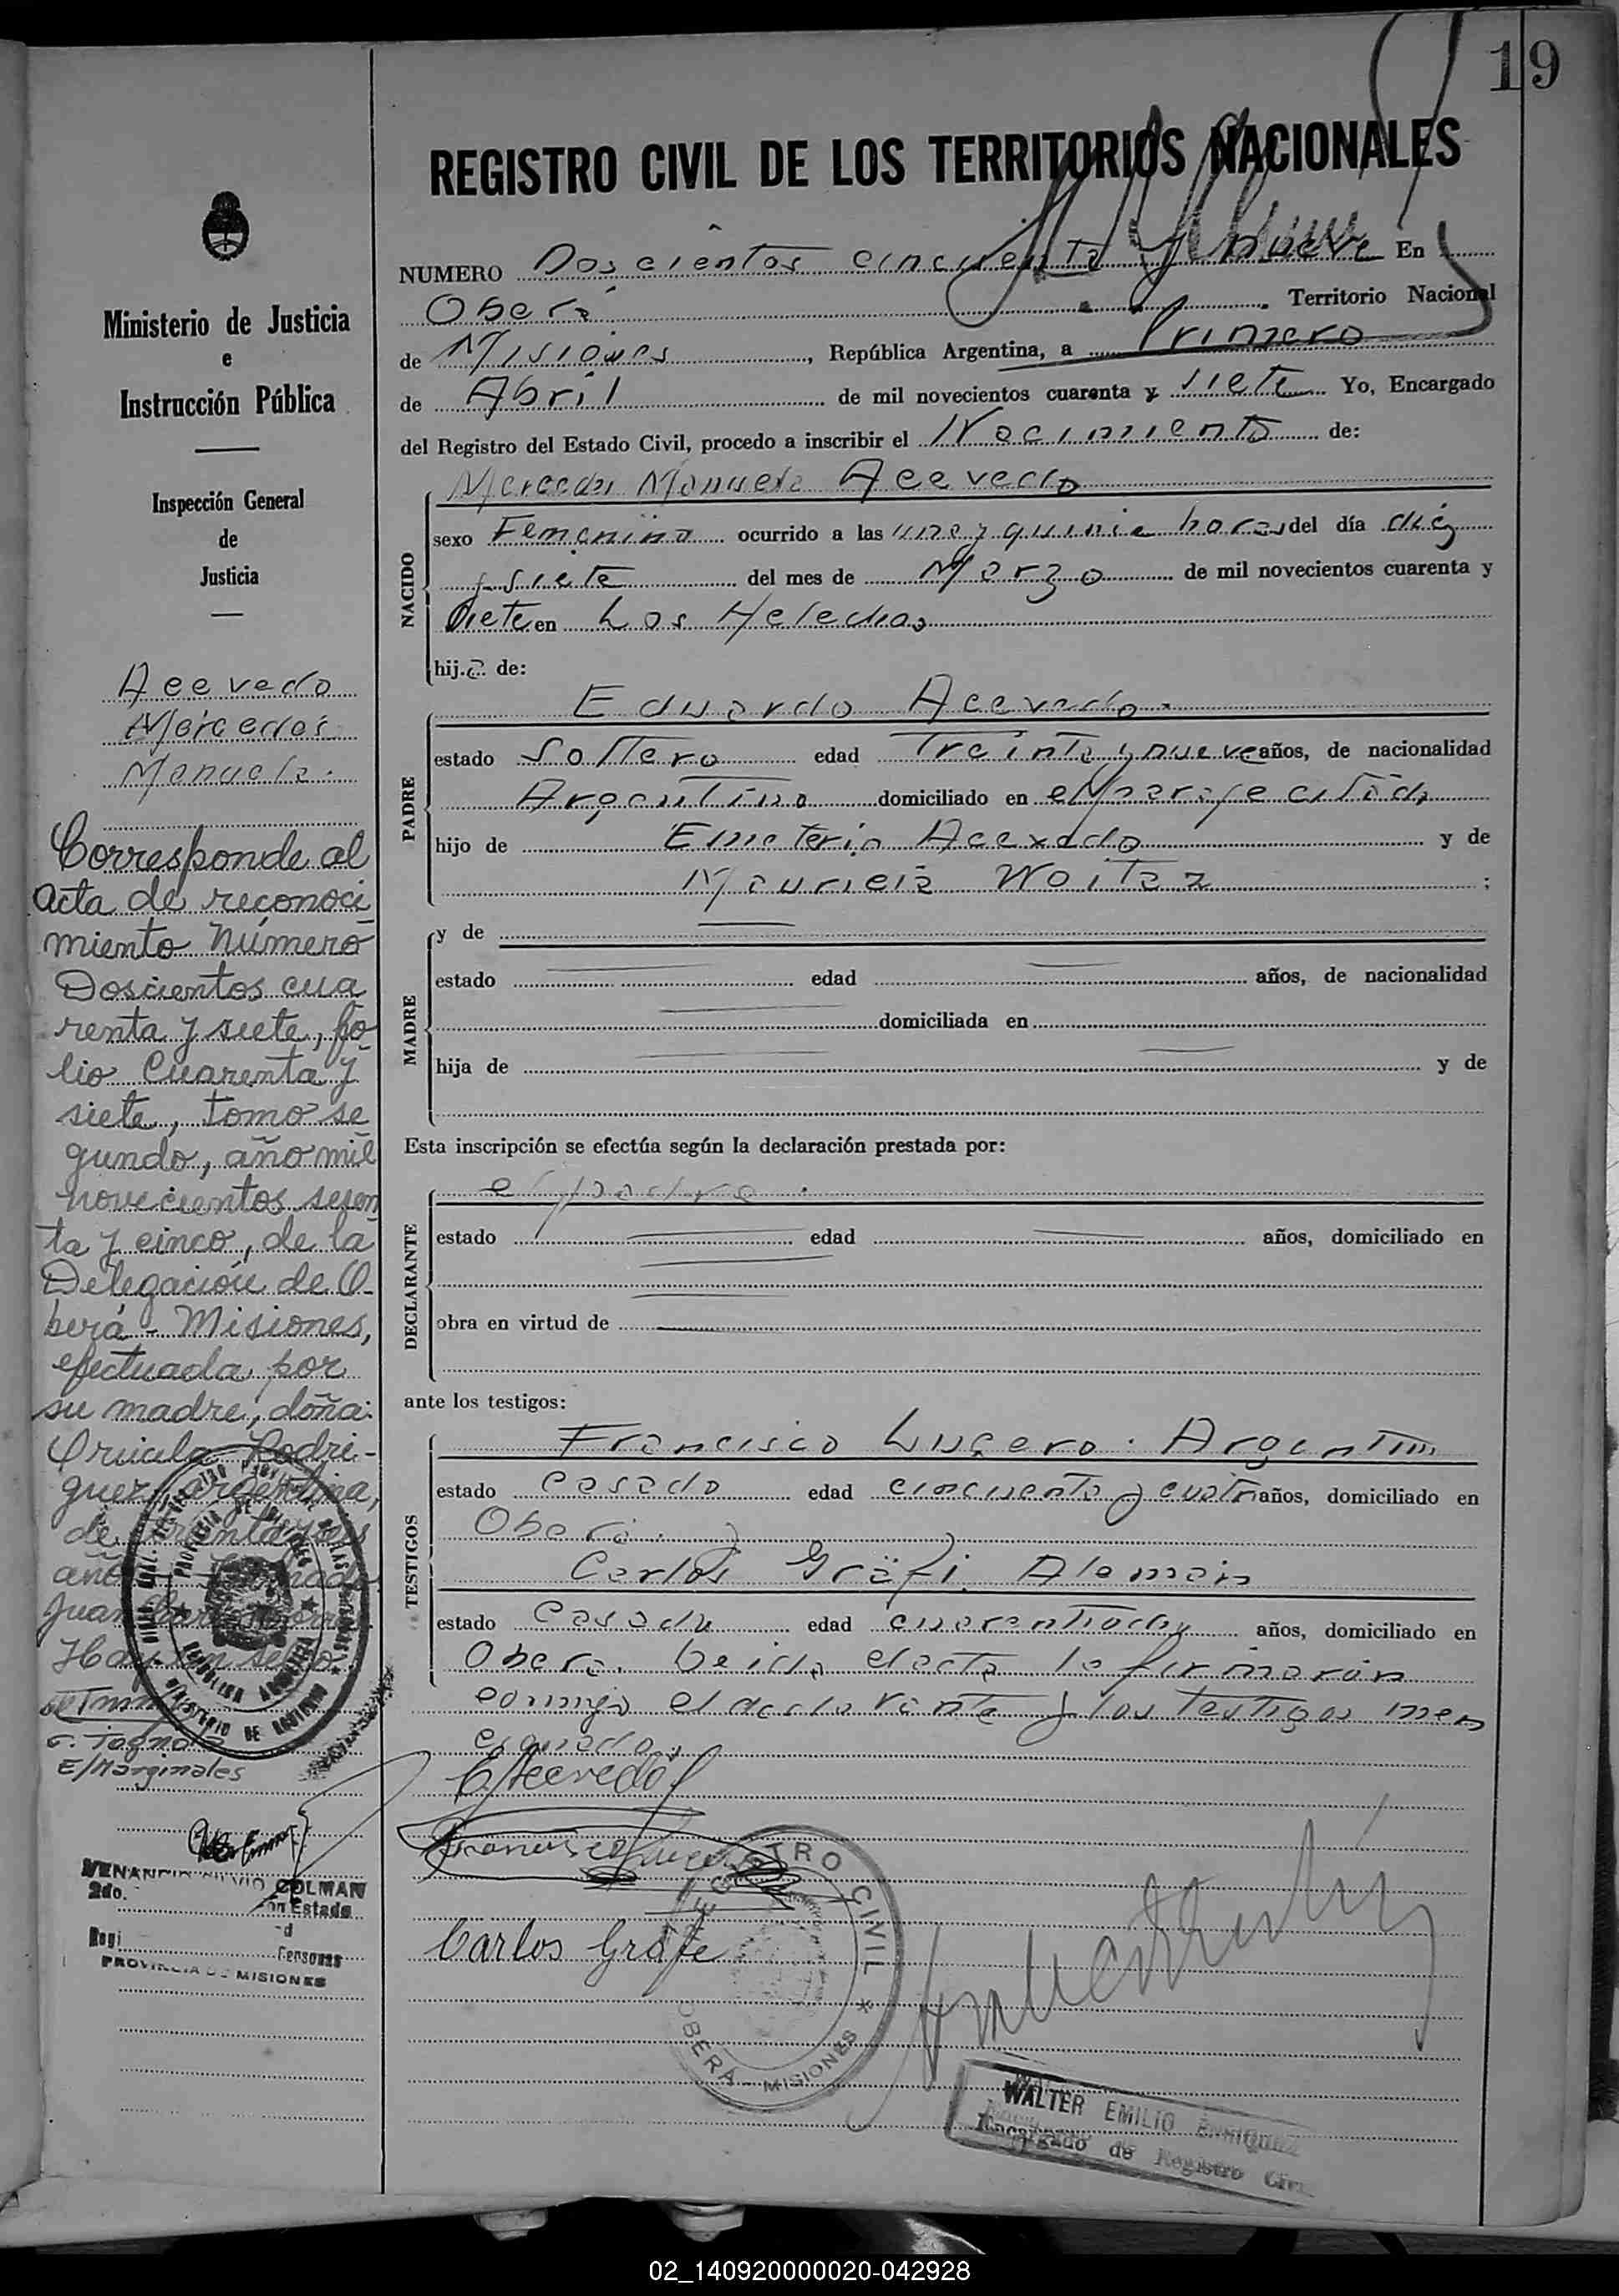 19
REGISTRO CIVIL DE LOS TERRITORIOS NACIONALES
NUMERO Doscientos cincuenta y nueve En
Oberá Territorio Nacional
de Misiones, República Argentina, a Primero
de Abril de mil novecientos cuarenta y siete Yo, Encargado
del Registro del Estado Civil, procedo a inscribir el Nacimiento de:
NACIDO
Mercedes Manuela Acevedo
sexo Femenino ocurrido a las una y quince horas del día diez
y siete del mes de Marzo de mil novecientos cuarenta y
siete en Los Helechos
hija de:
PADRE
Eduardo Acevedo.
estado Soltero edad Treinta y nueve años, de nacionalidad
Argentino domiciliado en el paraje citado
hijo de Emeterio Acevedo y de
Mauricia Woitaz ;
MADRE
y de
estado edad años, de nacionalidad
domiciliada en
hija de y de
Esta inscripción se efectúa según la declaración prestada por:
DECLARANTE
el padre.
estado edad años, domiciliado en
obra en virtud de
ante los testigos:
TESTIGOS
Francisco Lucero. Argentino
estado casado edad cincuenta y cuatro años, domiciliado en
Oberá. y
Carlos Gräfi. Alemán
estado Casado edad años, domiciliado en
Oberá. Leida el acta la firmaron
conmigo el declarante y los testigos men
cionados.
EAcevedo
Francisco Lucero
Carlos Gräfe
REGISTRO CIVIL
OBERÁ - MISIONES
WALTER EMILIO
Encargado de Registro Civil
Ministerio de Justicia
e
Instrucción Pública
Inspección General
de
Justicia
Acevedo
Mercedes
Manuela.
Corresponde al
acta de reconoci
miento Número
Doscientos cua
renta y siete, fo
lio Cuarenta y
siete, tomo se
gundo, año mil
novecientos sesen
ta y cinco, de la
Delegación de O-
berá - Misiones,
efectuada por
su madre, doña:
Rodri-
guez, argentina,
de
Juan
Hay un sello
E/Marginales
COLMAN
2do.
PROVINCIA DE MISIONES
02_140920000020-042928